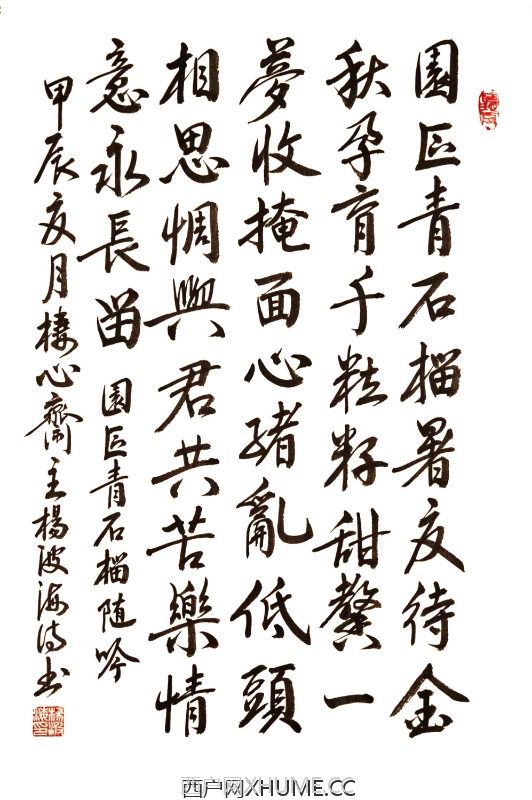 園區青石榴暑夏待金
秋孕育千粒籽甜馨一
夢收掩面心緒亂低頭
相思惆與君共苦樂情
意永長留
園區青石榴随吟
甲辰夏月棲心齋主楊波海诗书
西户网XHUME.CC